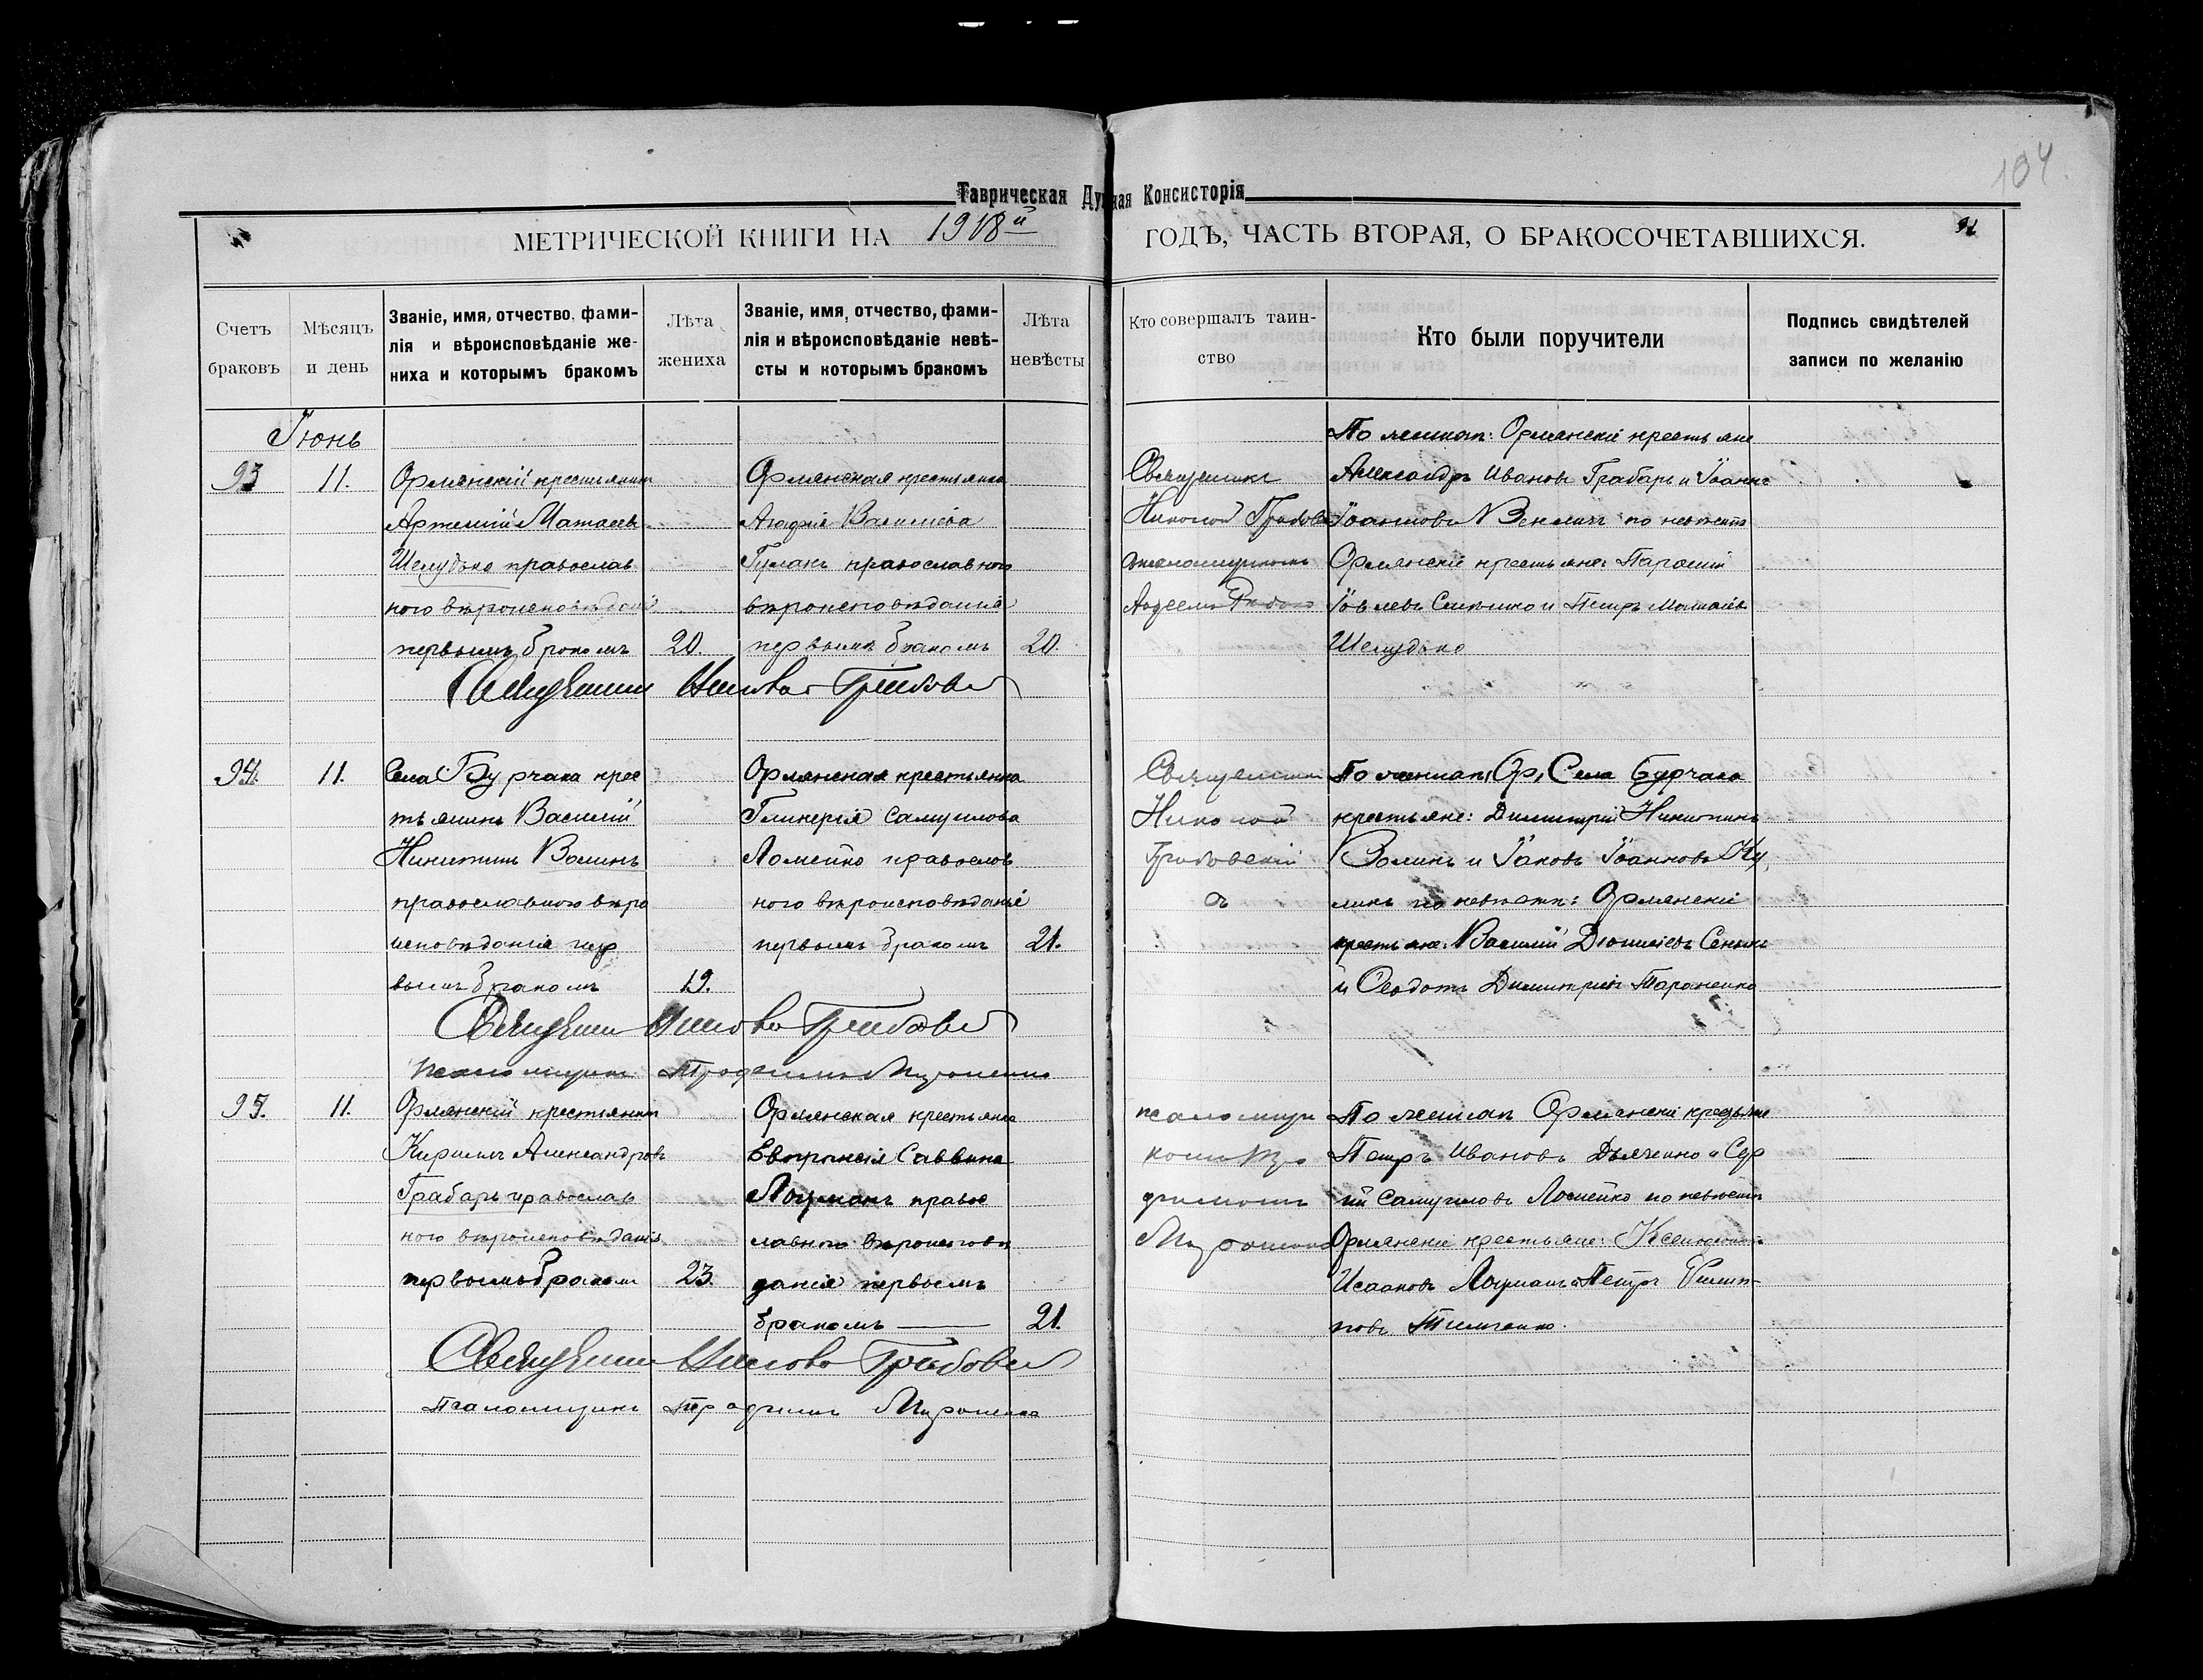 104.
Таврическая Духная Консисторія
МЕТРИЧЕСКОЙ КНИГИ НА 1918й ГОДЪ, ЧАСТЬ ВТОРАЯ, О БРАКОСОЧЕТАВШИХСЯ.
Счетъ браковъ
Мѣсяцъ и день
Званіе, имя, отчество, фами-
лія и вѣроисповѣданіе же-
ниха и которымъ бракомъ
Лѣта жениха
Званіе, имя, отчество, фами-
лія и вѣроисповѣданіе невѣ-
сты и которымъ бракомъ
Лѣта невѣсты
Кто совершалъ таин-
ство
Кто были поручители
Подпись свидѣтелей
записи по желанію
Іюнь
93
11.
Орлянскій крестьянинъ
Артемій Матѳеевъ
Шелудько православ
ного вѣроисповѣданія
первымъ бракомъ
20.
Орлянская крестьянка
Агафія Василіева
Гулакъ православного
вѣроисповѣданія
первымъ бракомъ
20.
Священникъ
Николай
По жениху: Орлянскіе крестьяне
Александръ Ивановъ Грабарь и Іоаннъ
Іоанновъ по невѣстѣ
Орлянскіе крестьяне
и Петръ Матѳеевъ
Шелудько
94.
11.
Села Бурчака крес
тьянинъ Василій
Никитинъ Волинъ
православного вѣро
исповѣданія пер
вымъ бракомъ
19.
Орлянская крестьянка
Гликерія Самуилова
Ломейко православ
ного вѣроисповѣданія
первымъ бракомъ
21.
Священникъ
Николай
По жениху Села Бурчака
крестьяне: Димитрій Никитинъ
Волинъ и Іаковъ Іоанновъ Ку
ликъ по невѣстѣ: Орлянскіе
крестьяне: Василій
и Ѳеодотъ Димитріевъ Тараненко
Псаломщикъ Трофимъ Мироненко
95.
11.
Орлянскій крестьянинъ
Кириллъ Александровъ
Грабарь православ
ного вѣроисповѣданія
первымъ бракомъ
23.
Орлянская крестьянка
Евфросинія Саввина
Лоцманъ правос
лавного вѣроисповѣ
данія первымъ
бракомъ
21.
По жениху Орлянскіе крестьяне
Петръ Ивановъ Дьяченко и Сер
гій Самуиловъ Ломейко по невѣстѣ
Орлянскіе крестьяне:
Исааковъ Лоцманъ и Петръ Филип
повъ Тимченко.
Псаломщикъ Трофимъ Мироненко